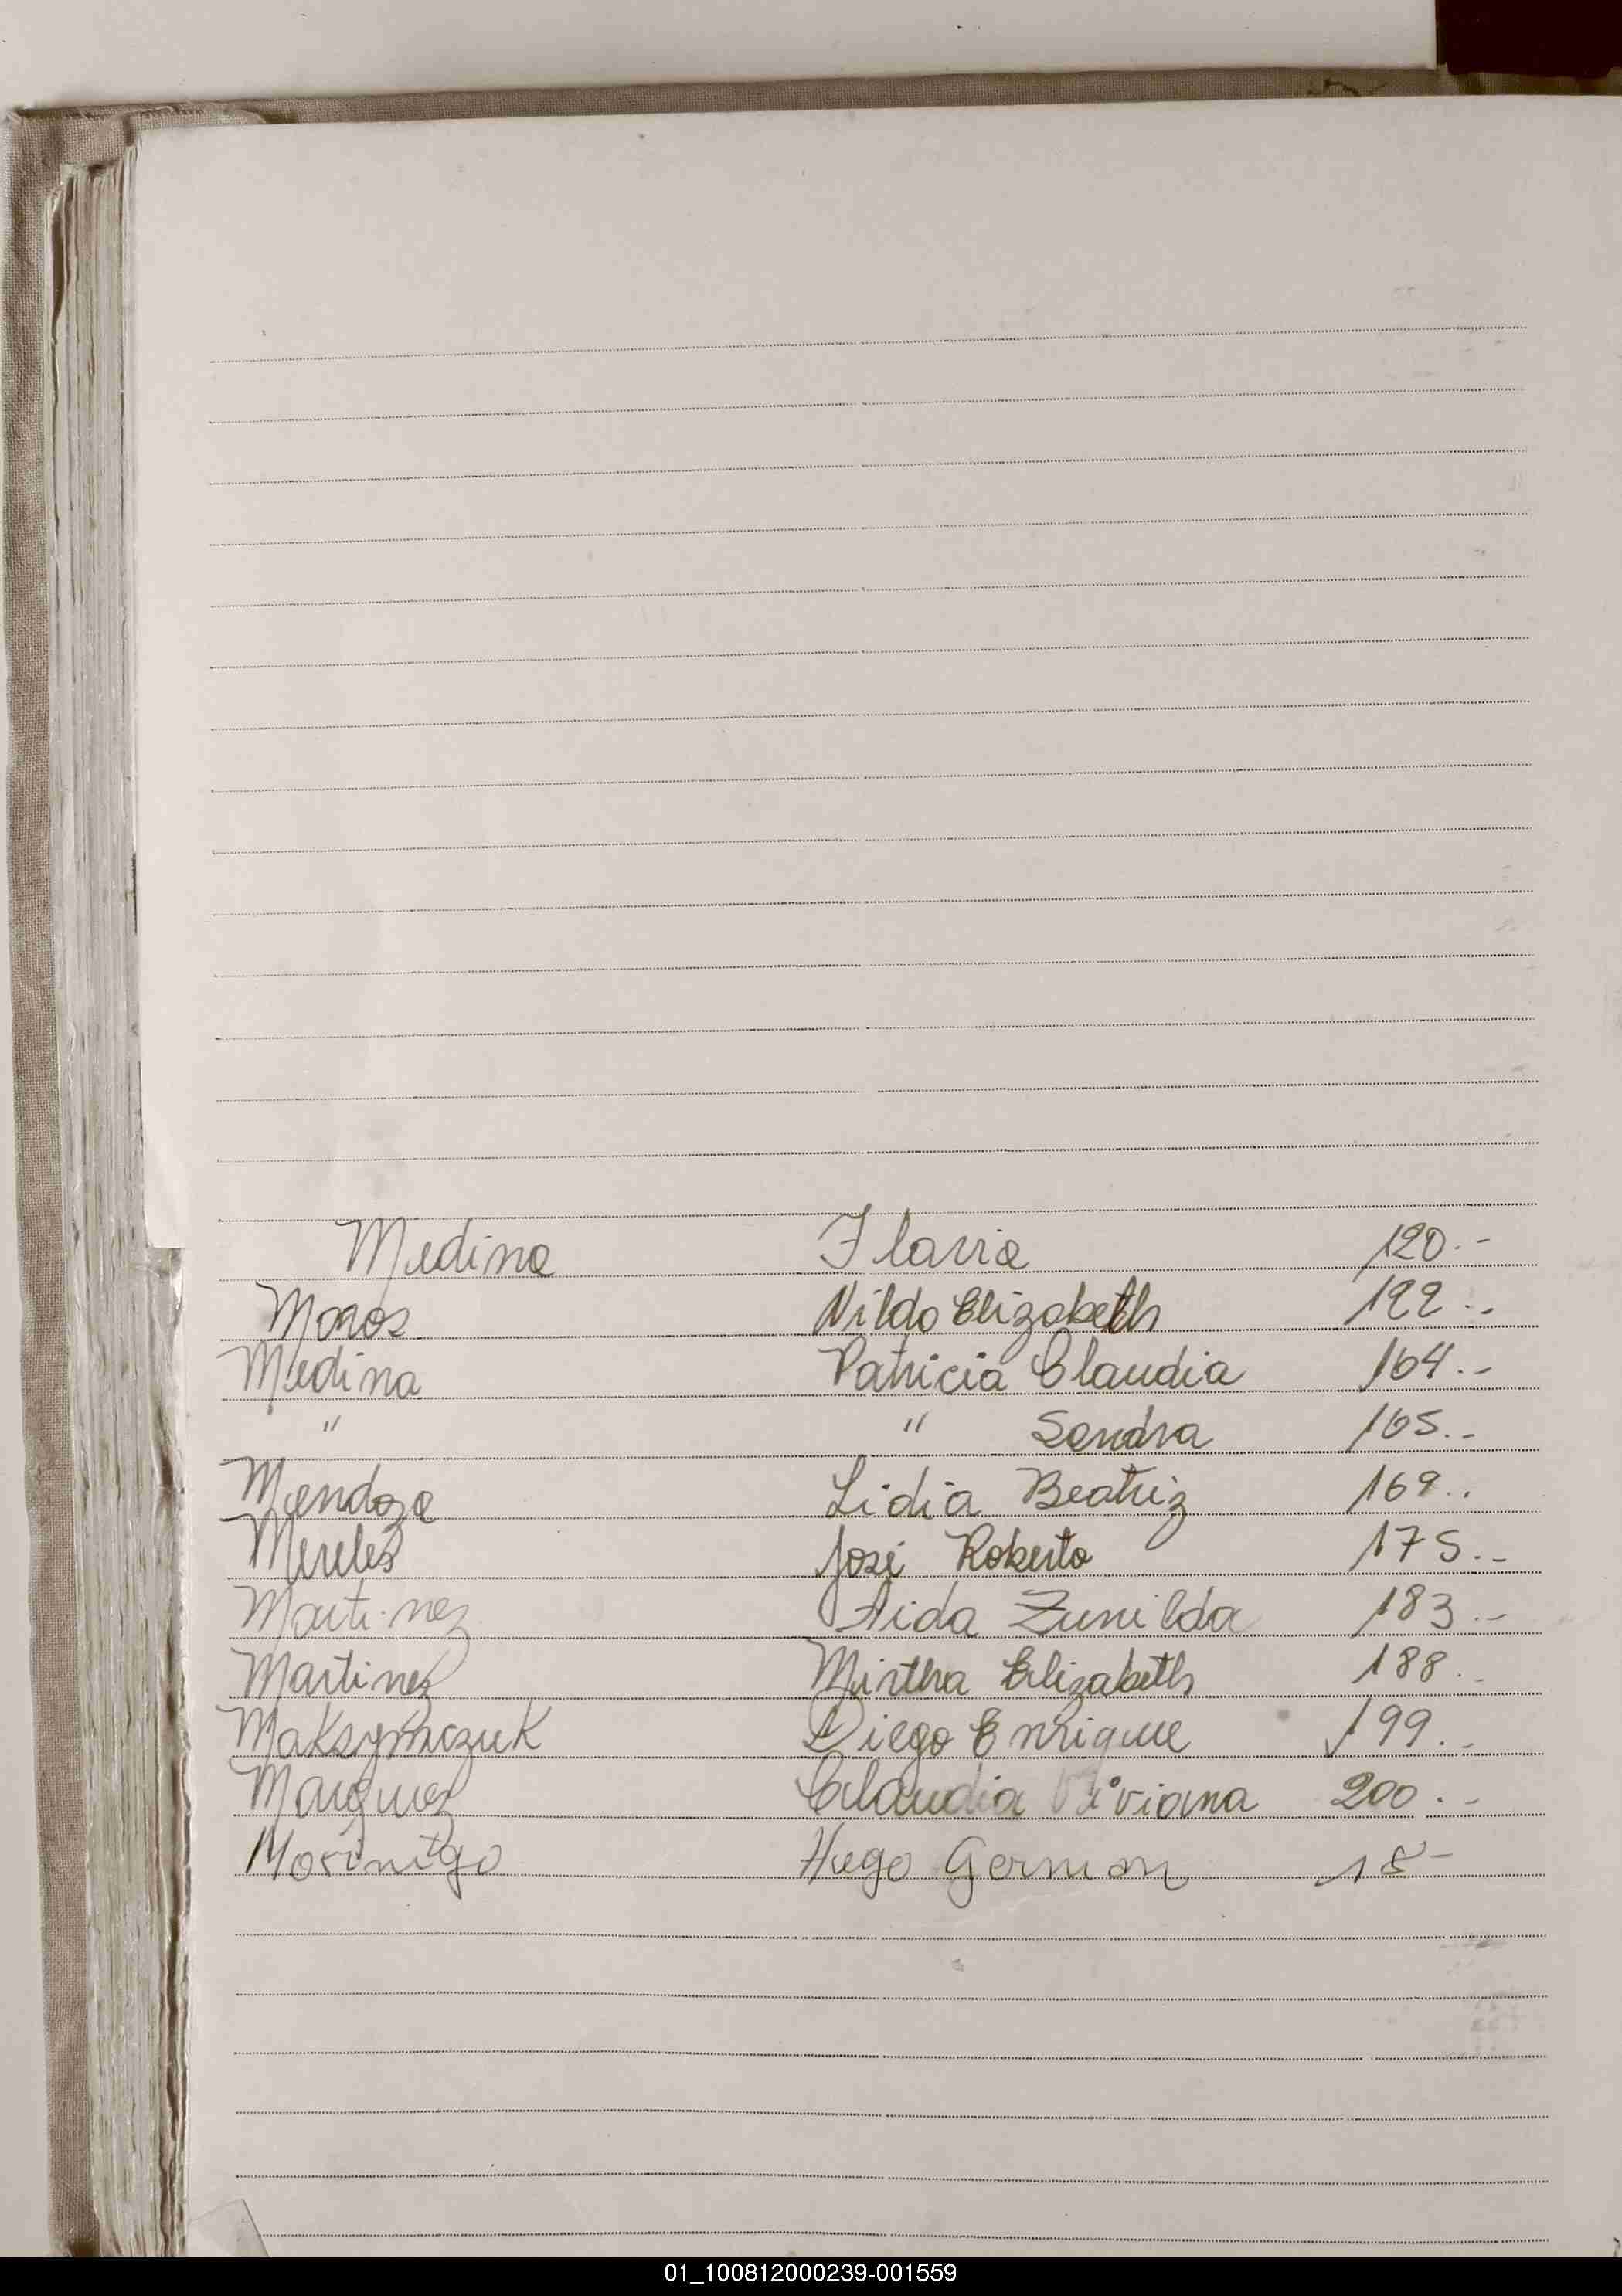 Medina Flavia 120.-
Moros Nilda Elizabeth 122.-
Medina Patricia Claudia 164.-
" " Sandra 165.-
Mendoza Lidia Beatriz 169..
Mereles José Roberto 175.-
Martinez Aida Zunilda 183.-
Martinez Mirtha Elizabeth 188.-
Maksymczuk Diego Enrique 199.-
Marquez Claudia Viviana 200.-
Morinigo Hugo German 18-
01_100812000239-001559